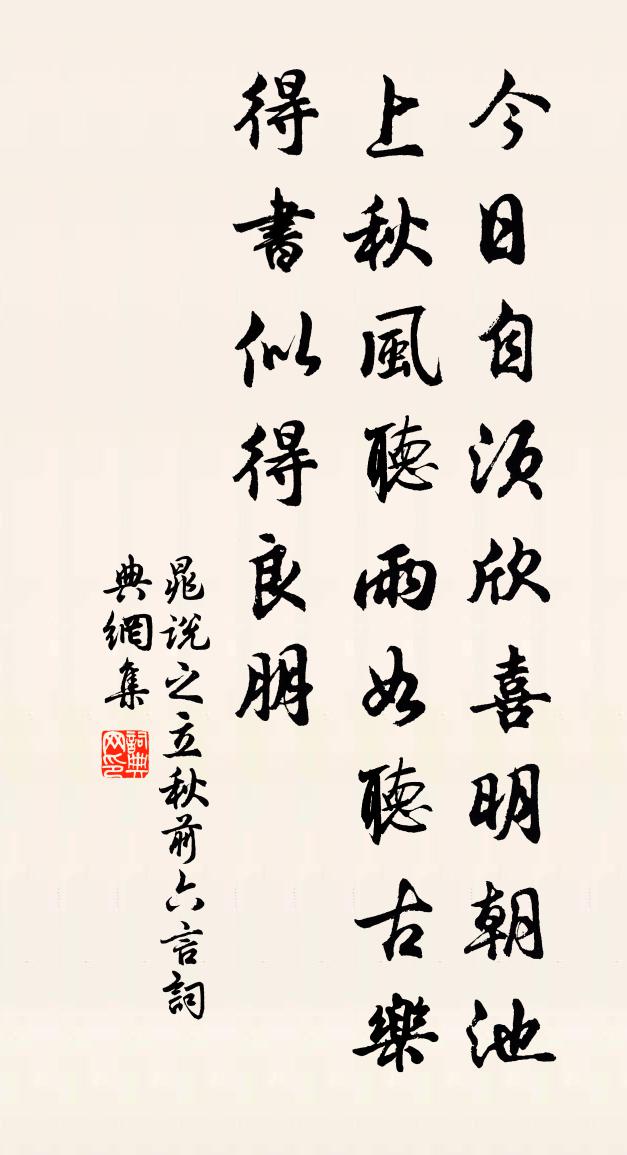 今日自須欣喜明朝池
上秋風聽雨如聽古樂
得書似得良朋
晁說之立秋前六言詞
典網集
詞典網印